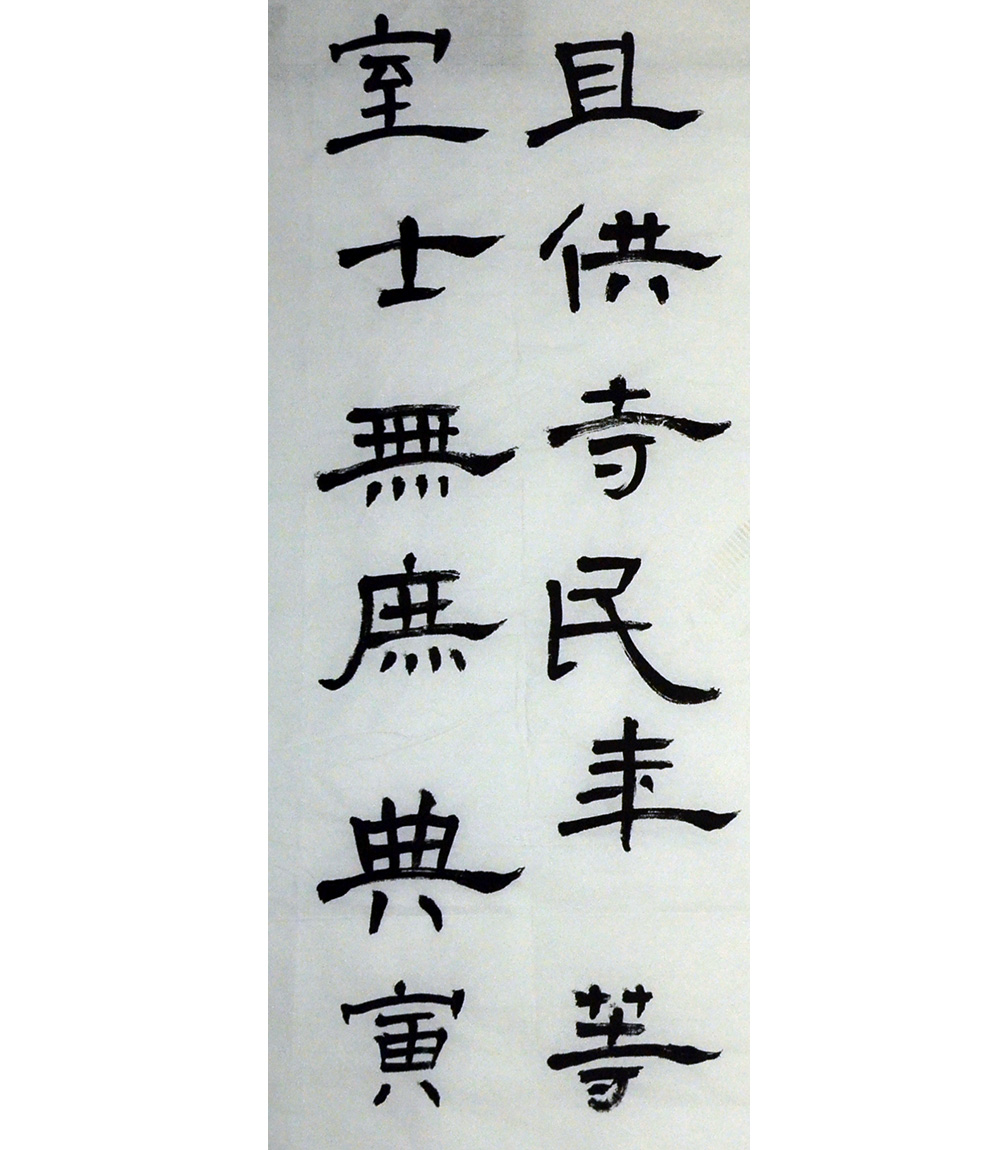 且供寺民年等
室士無庶典寅